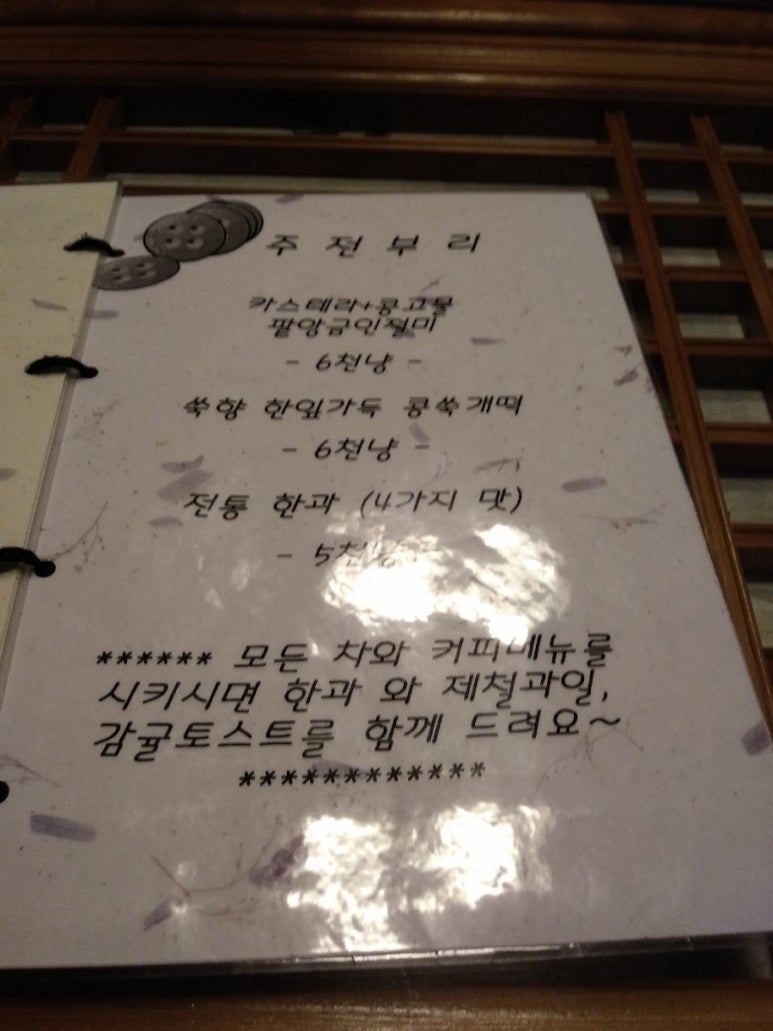 주 전 부 리
카스테라+콩고물
팥앙금인절미
- 6천냥 -
쑥향 한잎가득 콩쑥개떡
- 6천냥 -
전통 한과 (4가지 맛)
- 5천냥 -
****** 모든 차와 커피메뉴를
시키시면 한과 와 제철과일,
감귤토스트를 함께 드려요~
************